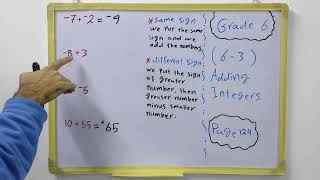 -7+-2=-9
-8+3
-5
10+55=+65
* same sign
we put the same
sign and we
add the numbers.
* different sign
we put the sign
of greater
number, then
greater number
minus smaller
number.
Grade 6
(6-3)
Adding
Integers
Page 124